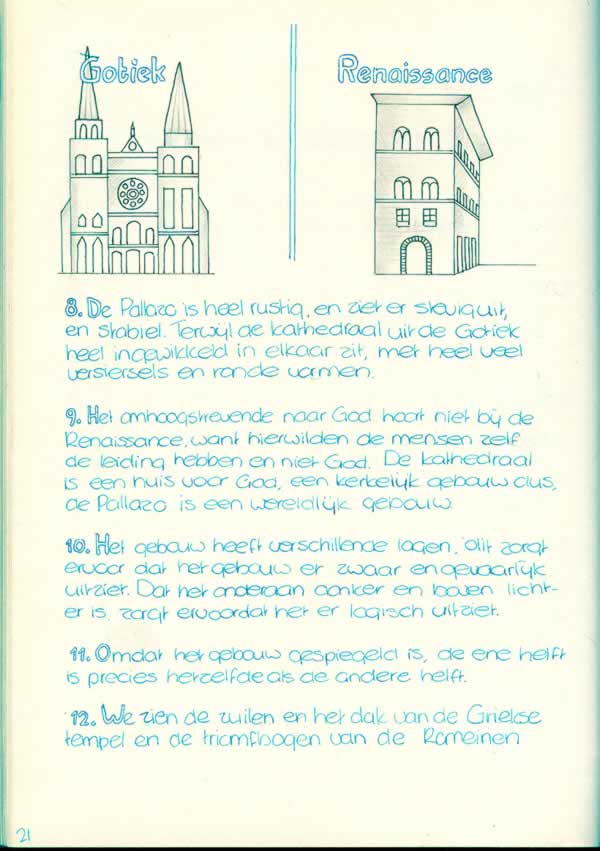 Gotiek
Renaissance
8. De Pallazo is heel rustig, en ziet er stevig uit,
en stabiel. Terwijl de kathedraal uit de Gotiek
heel ingewikkeld in elkaar zit, met heel veel
versiersels en ronde vormen.
9. Het omhoogstrevende naar God hoort niet bij de
Renaissance, want hier wilden de mensen zelf
de leiding hebben en niet God. De kathedraal
is een huis voor God, een kerkelijk gebouw dus,
de Pallazo is een wereldlijk gebouw.
10. Het gebouw heeft verschillende lagen, dit zorgt
ervoor dat het gebouw er zwaar en gevaarlijk
uitziet. Dat het onderaan donker en boven licht-
er is, zorgt ervoor dat het er logisch uitziet.
11. Omdat het gebouw gespiegeld is, de ene helft
is precies hetzelfde als de andere helft.
12. We zien de zuilen en het dak van de Griekse
tempel en de triomfbogen van de Romeinen
21